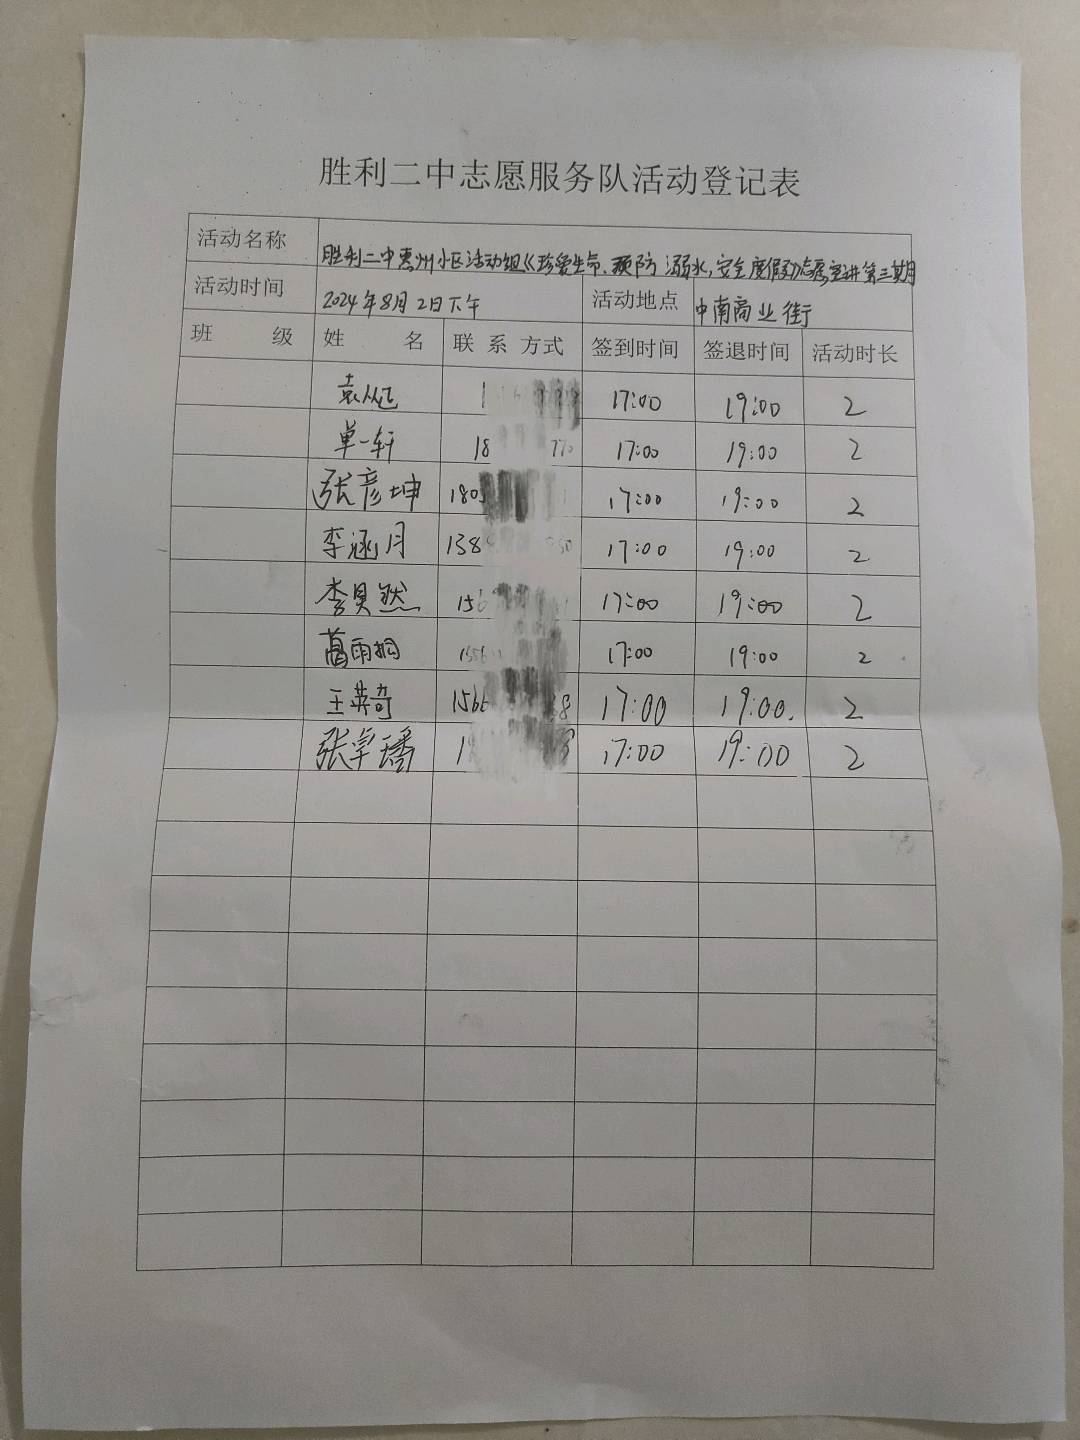 胜利二中志愿服务队活动登记表
活动名称 胜利二中惠州小区活动组《珍爱生命、预防溺水,安全度假》志愿宣讲第三期
活动时间 2024年8月2日下午 活动地点 中南商业街
班 级 姓 名 联系方式 签到时间 签退时间 活动时长
袁 1 17:00 19:00 2
单一轩 18 770 17:00 19:00 2
张彦坤 180 17:00 19:00 2
李涵月 138 17:00 19:00 2
李昊然 156 17:00 19:00 2
葛雨桐 156 17:00 19:00 2
王英奇 1566 17:00 19:00 2
张卓璠 1 17:00 19:00 2